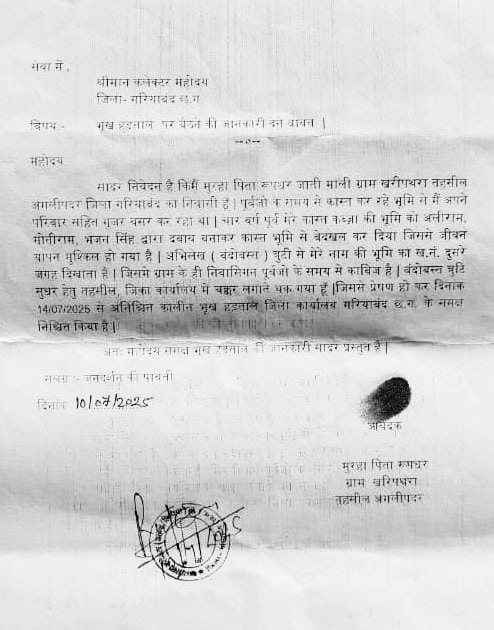 सेवा में ,
श्रीमान कलेक्टर महोदय
जिला- गरियाबंद छ.ग.
विषय:- भूख हड़ताल पर बैठने की जानकारी देने बाबत |
--0--
महोदय
सादर निवेदन है कि मैं मुरहा पिता रूपधर जाती माली ग्राम खरीपथरा तहसील
अमलीपदर जिला गरियाबंद का निवासी हूँ | पूर्वजो के समय से कास्त कर रहे भूमि से मैं अपने
परिवार सहित गुजर बसर कर रहा था | चार वर्ष पूर्व मेरे कास्त कब्जा की भूमि को अलीराम,
मोतीराम, भजन सिंह द्वारा दबाव बनाकर कास्त भूमि से बेदखल कर दिया जिससे जीवन
यापन मुश्किल हो गया है | अभिलेख ( बंदोबस्त ) त्रुटी से मेरे नाम की भूमि का ख.नं. दुसरे
जगह दिखाता है | जिसमे ग्राम के ही निवासिगन पूर्वजो के समय से काबिज है | बंदोबस्त त्रुटि
सुधार हेतु तहसील, जिला कार्यालय में चक्कर लगाते थक गया हूँ |जिससे प्रेषण हो कर दिनांक
14/07/2025 से अनिश्चित कालीन भूख हड़ताल जिला कार्यालय गरियाबंद छ.ग. के समक्ष
निश्चित किया है |
अतः महोदय समक्ष भूख हड़ताल की जानकारी सादर प्रस्तुत है |
सलग्न:- जनदर्शन की पावती
दिनांक 10/07/2025
आवेदक
मुरहा पिता रूपधर
ग्राम खरिपथरा
तहसील अमलीपदर